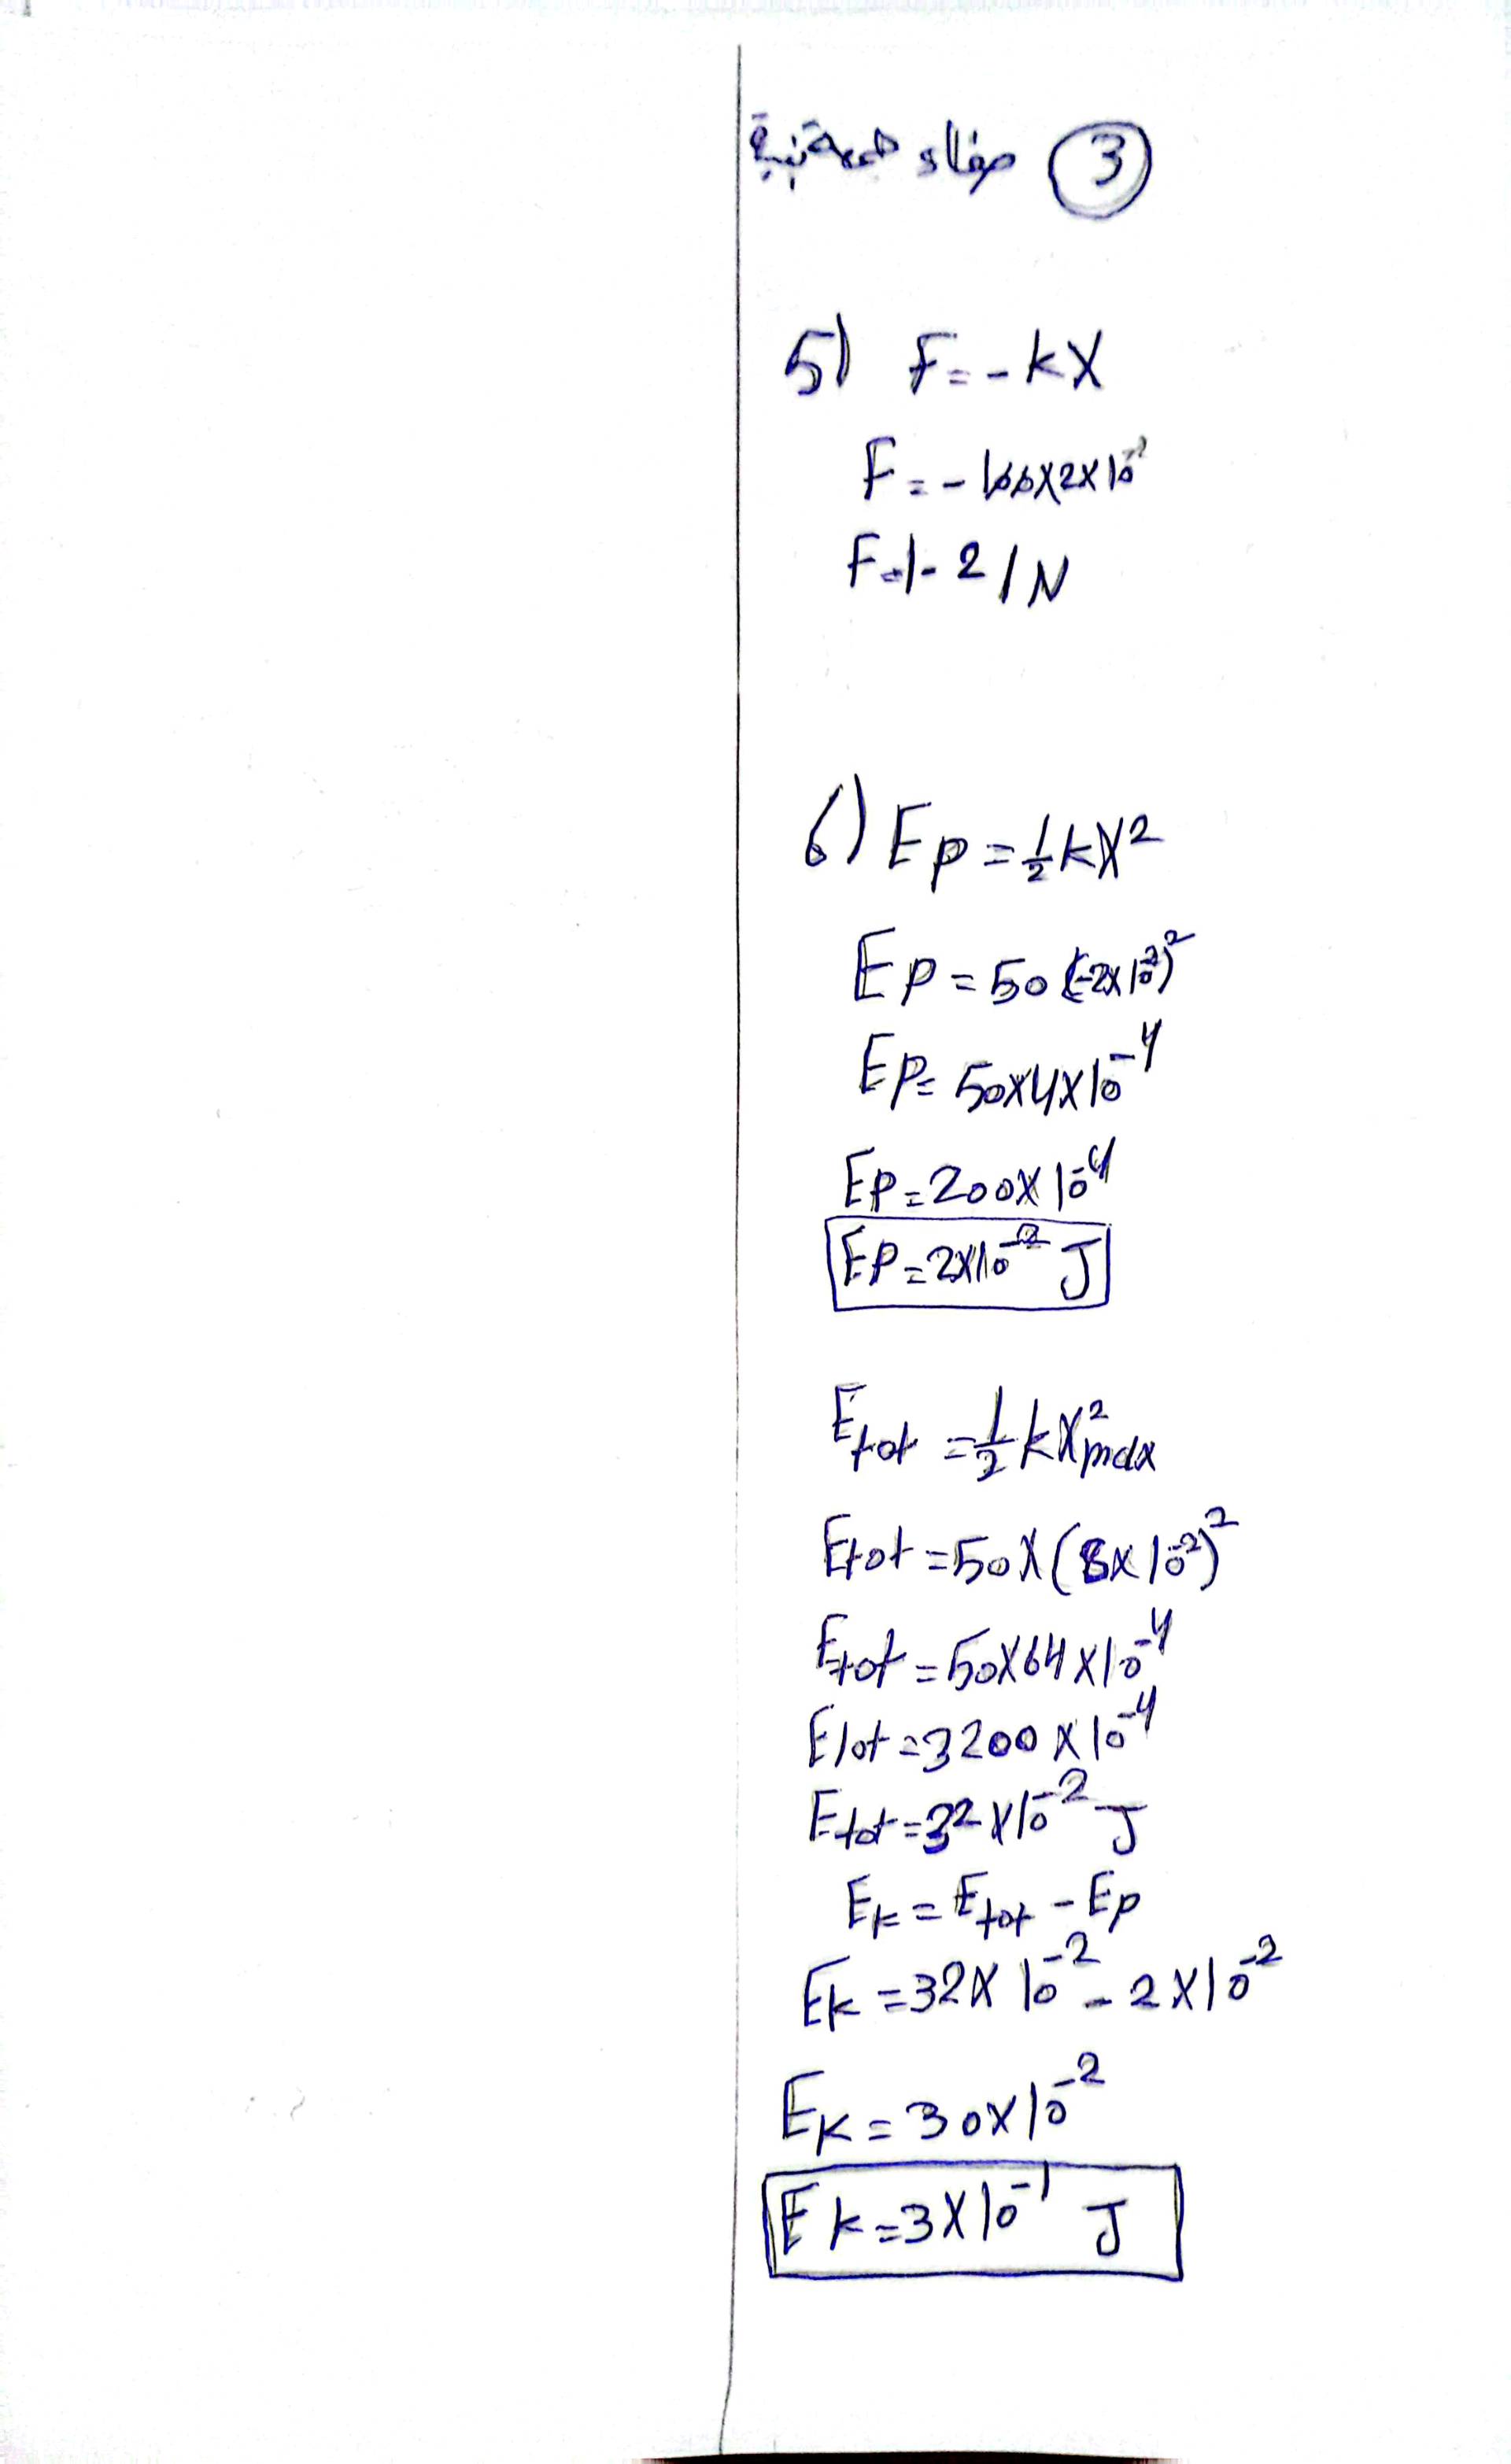 ③ صفاء
5) F = -kX
F = - 100X2X10⁻²
F = |- 2| N
6) Ep = ½kX²
Ep = 50 (-2X10⁻²)²
Ep = 50X4X10⁻⁴
Ep = 200X10⁻⁴
Ep = 2X10⁻² J
Etot = ½ kX²max
Etot = 50X(8X10⁻²)²
Etot = 50X64X10⁻⁴
Etot = 3200X10⁻⁴
Etot = 32X10⁻² J
Ek = Etot - Ep
Ek = 32X10⁻² - 2X10⁻²
Ek = 30X10⁻²
Ek = 3X10⁻¹ J